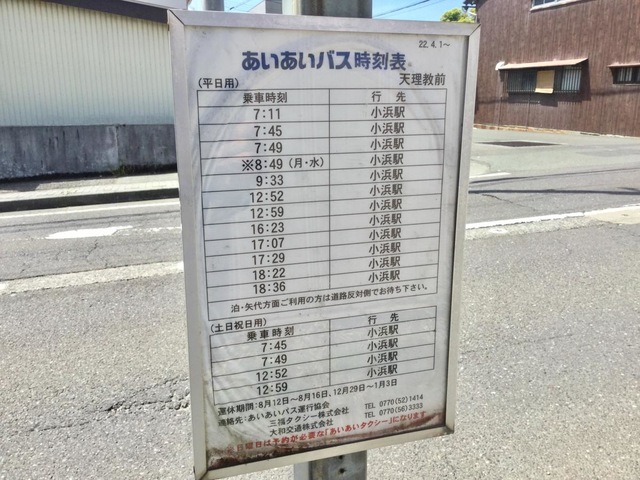 22. 4. 1～
あいあいバス時刻表
(平日用) 天理教前
乗車時刻 行先
7:11 小浜駅
7:45 小浜駅
7:49 小浜駅
※8:49 (月・水) 小浜駅
9:33 小浜駅
12:52 小浜駅
12:59 小浜駅
16:23 小浜駅
17:07 小浜駅
17:29 小浜駅
18:22 小浜駅
18:36 小浜駅
泊・矢代方面ご利用の方は道路反対側でお待ち下さい。
(土日祝日用)
乗車時刻 行先
7:45 小浜駅
7:49 小浜駅
12:52 小浜駅
12:59 小浜駅
運休期間：8月12日～8月16日、12月29日～1月3日
連絡先：あいあいバス運行協会
三福タクシー株式会社 TEL 0770(52)1414
大和交通株式会社 TEL 0770(56)3333
日は予約が必要な「あいあいタクシー」になります